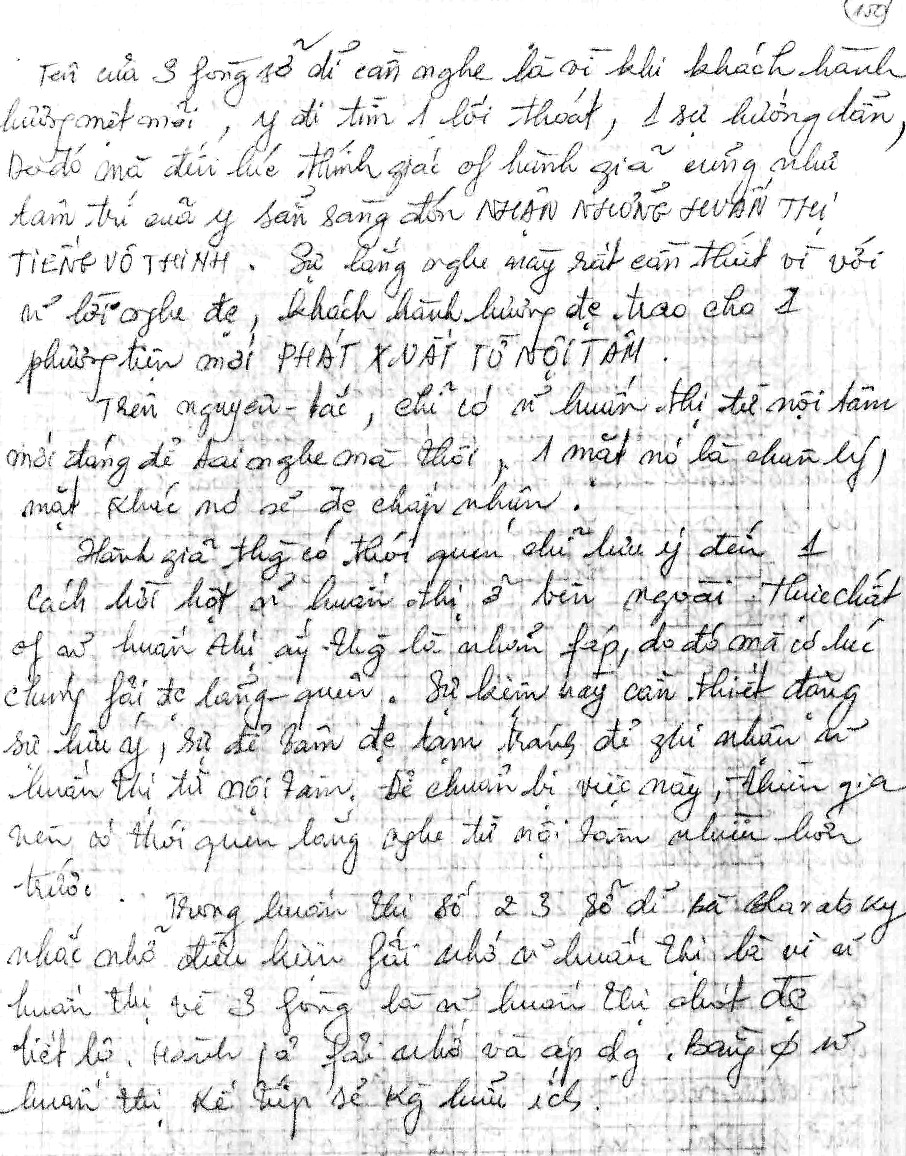 150
Tên của 3 fòng sở dỉ cần nghe là vì khi khách hành
hương mệt mỏi, y đi tìm 1 lối thoát, 1 sự hướng dẫn,
Do đó mà đến lúc thính giác of hành giả cũng như
tâm trí của y sẵn sàng đón NHẬN NHỮNG HUẤN THỊ
TIẾNG VÔ THINH. Sự lắng nghe này rất cần thiết vì với
n~ lời nghe đc, khách hành hương đc trao cho 1
phương tiện mới PHÁT XUẤT TỪ NỘI TÂM.
Trên nguyên-tắc, chỉ có n~ huấn thị từ nội tâm
mới đáng để tai nghe mà thôi, 1 mặt nó là chân lý,
mặt khác nó sẽ đc chấp nhận.
Hành giả thg có thói quen chỉ lưu ý đến 1
cách hời hợt n~ huấn thị ở bên ngoài. Thực chất
of n~ huấn thị ấy thg là nhơn fáp, do đó mà có lúc
chúng fải đc lãng-quên. Sự kiện này cần thiết đặng
sự lưu ý, sự để tâm đc tạm trống để ghi nhận n~
huấn thị từ nội tâm. Để chuẩn bị việc này, thiền gia
nên có thói quen lắng nghe từ nội tâm nhiều hơn
trước.
Trong huấn thị số 23 sở dỉ bà Blavatsky
nhắc nhở điều kiện fải nhớ n~ huấn thị là vì n~
huấn thị về 3 fòng là n~ huấn thị chót đc
tiết lộ. Hành jả fải nhớ và áp dg. Bằng ϕ n~
huấn thị kế tiếp sẽ kg hữu ích.